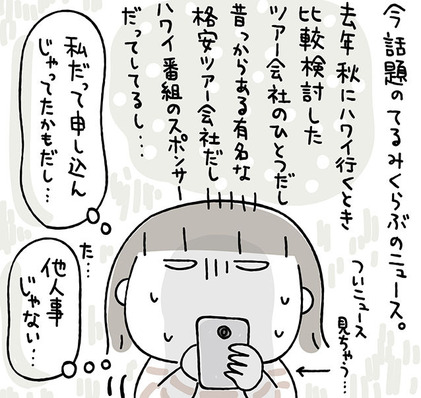 今話題のてるみくらぶのニュース。
去年 秋にハワイ行くとき
比較検討した
ツアー会社のひとつだし
昔っからある有名な
格安ツアー会社だし
ハワイ番組のスポンサー
だってしてるし…
私だって申し込ん
じゃってたかもだし…
た…
他人事
じゃない…
ついニュース
見ちゃう…